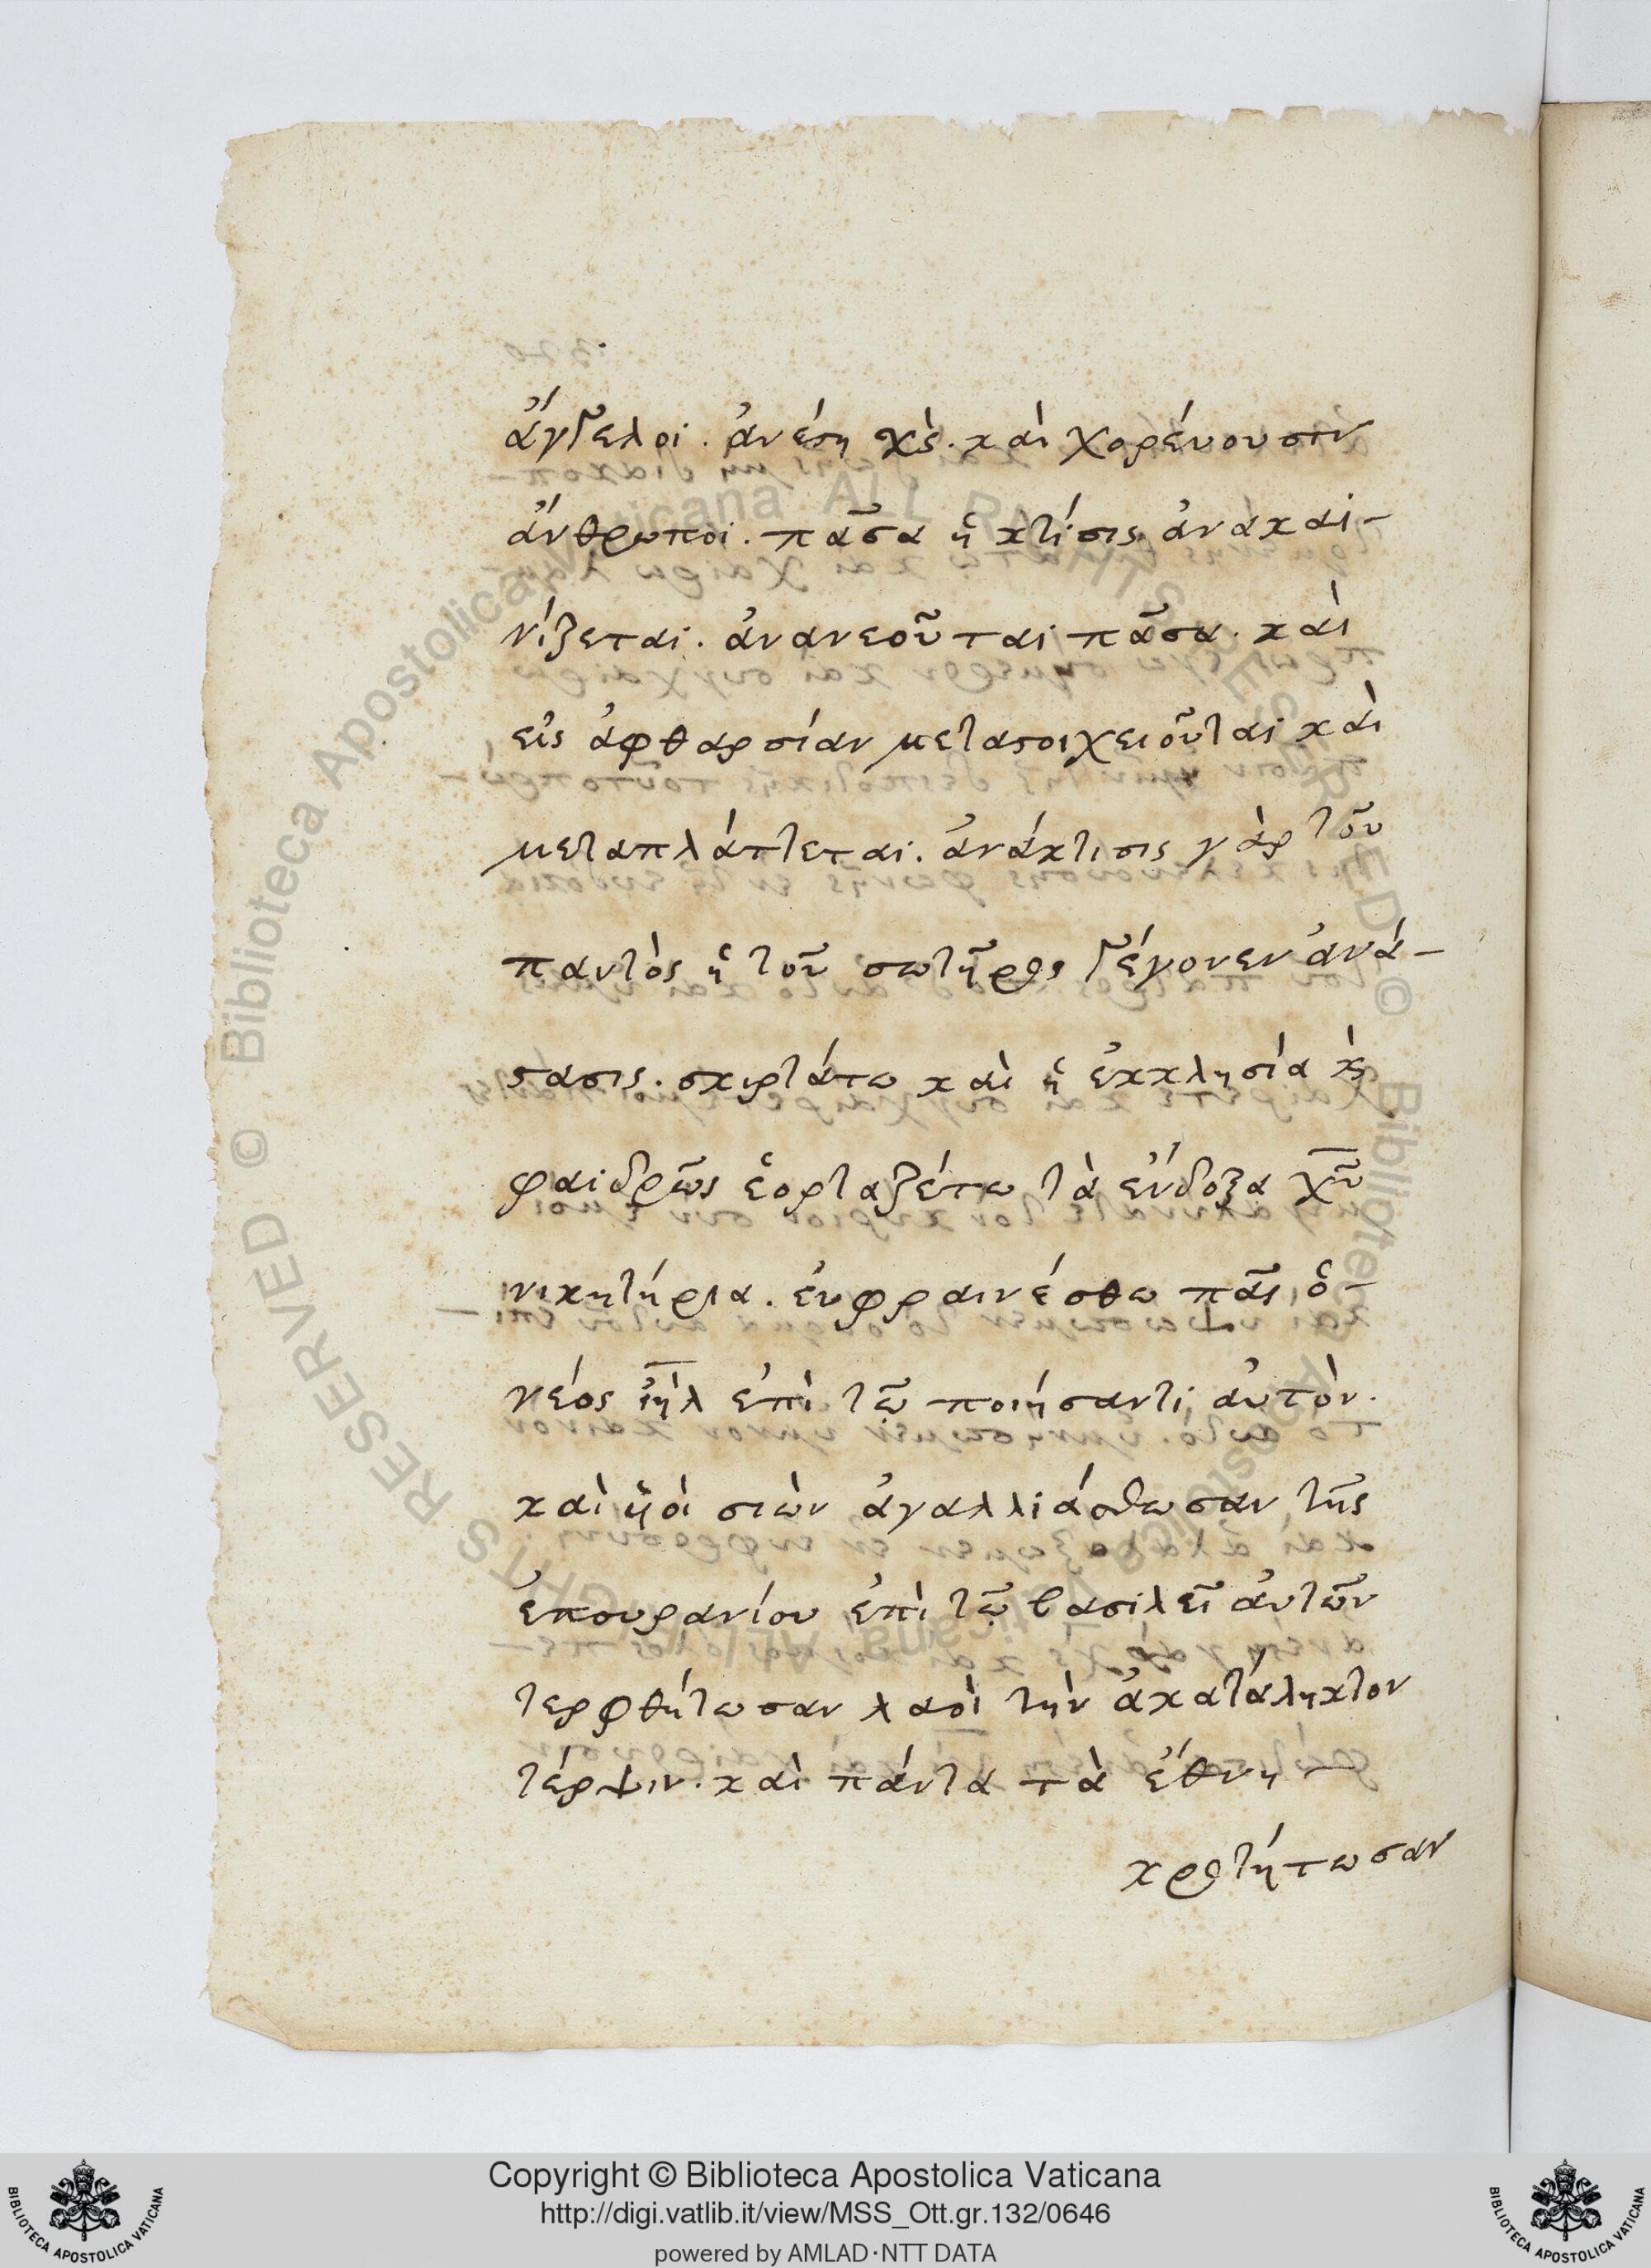 ἄγγελοι. ἀνέστη χς̀. καὶ χορέυουσιν
ἄνθρωποι. πᾶσα ἡ κτίσις ἀνακαι-
νίζεται. ἀνανεοῦται πᾶσα. καὶ
εἰς ἀφθαρσίαν μεταστοιχειοῦται καὶ
μεταπλάττεται. ἀνάκτισις γὰρ τοῦ
παντὸς ἡ τοῦ σωτῆρος γέγονεν ἀνά-
στασις. σκιρτάτω καὶ ἡ ἐκκλησία κ̀
φαιδρῶς ἑορταζέτω τὰ ἔνδοξα χῦ
νικητήρια. ἐυφραινέσθω πᾶς ὁ-
νέος ἰηλ ἐπὶ τῶ ποιήσαντι ἀυτὸν.
καὶ ὑοὶ σιὼν ἀγαλλιάσθωσαν τῆς
ἐπουρανίου ἐπὶ τῶ βασιλεῖ ἀυτῶν
τερφθήτωσαν λαοὶ τὴν ἀκατάληκτον
τέρψιν. καὶ πάντα τὰ ἔθνη -
κροτήτωσαν
Copyright © Biblioteca Apostolica Vaticana
http://digi.vatlib.it/view/MSS_Ott.gr.132/0646
powered by AMLAD·NTT DATA
BIBLIOTECA APOSTOLICA VATICANA
BIBLIOTECA APOSTOLICA VATICANA
© Biblioteca Apostolica Vaticana ALL RIGHTS RESERVED
© Biblioteca Apostolica Vaticana ALL RIGHTS RESERVED